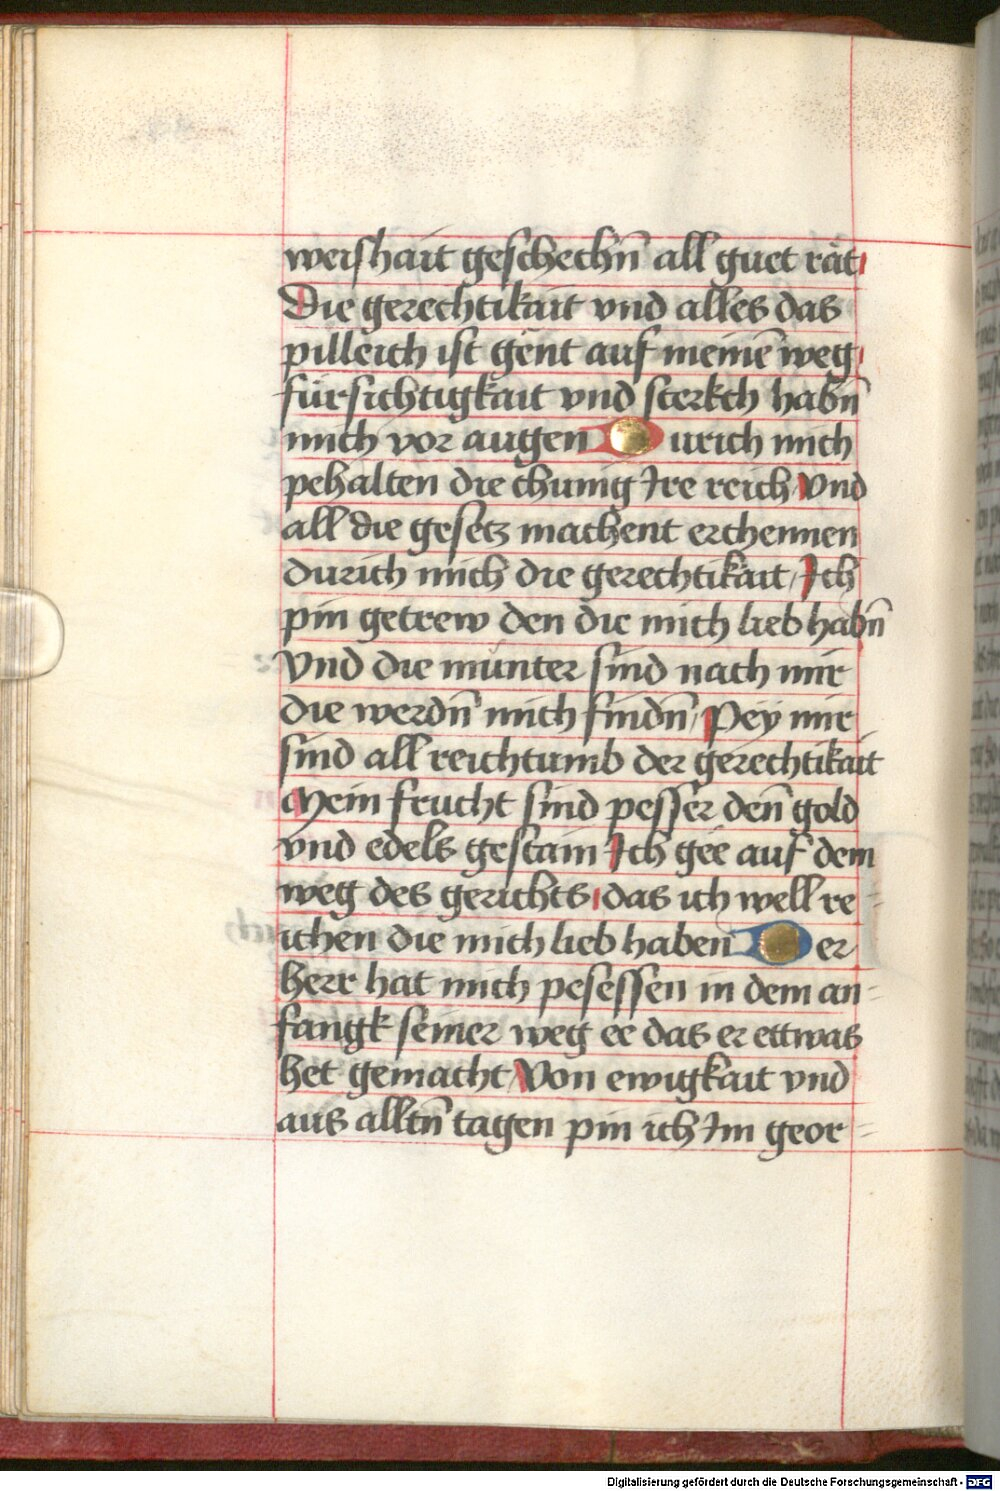 weishait geschechn̄ all guet rät
Die gerechtikait vnd alles das
pilleich ist gent auf meinē weg
fürsichtigkait vnd sterkch habn̄
mich vor augen Durich mich
pehalten die chunig Ire reich Vnd
all die gesetz machent erchennen
durich mich die gerechtikait Ich
pin getrew den die mich lieb habn̄
Vnd die munter sind nach mir
die werdn̄ mich findn̄ Pey mir
sind all reichtumb der gerechtikait
Mein frucht sind pesser den̄ gold
vnd edels gestain Ich gee auf dem
weg des gerichts das ich well re=
ichen die mich lieb haben Der
herr hat mich pesessen in dem an=
fangk seiner weg ee das er ettwas
het gemacht Von ewigkait vnd
aus alltn̄ tagen pin ich Im geor=
Digitalisierung gefördert durch die Deutsche Forschungsgemeinschaft - DFG